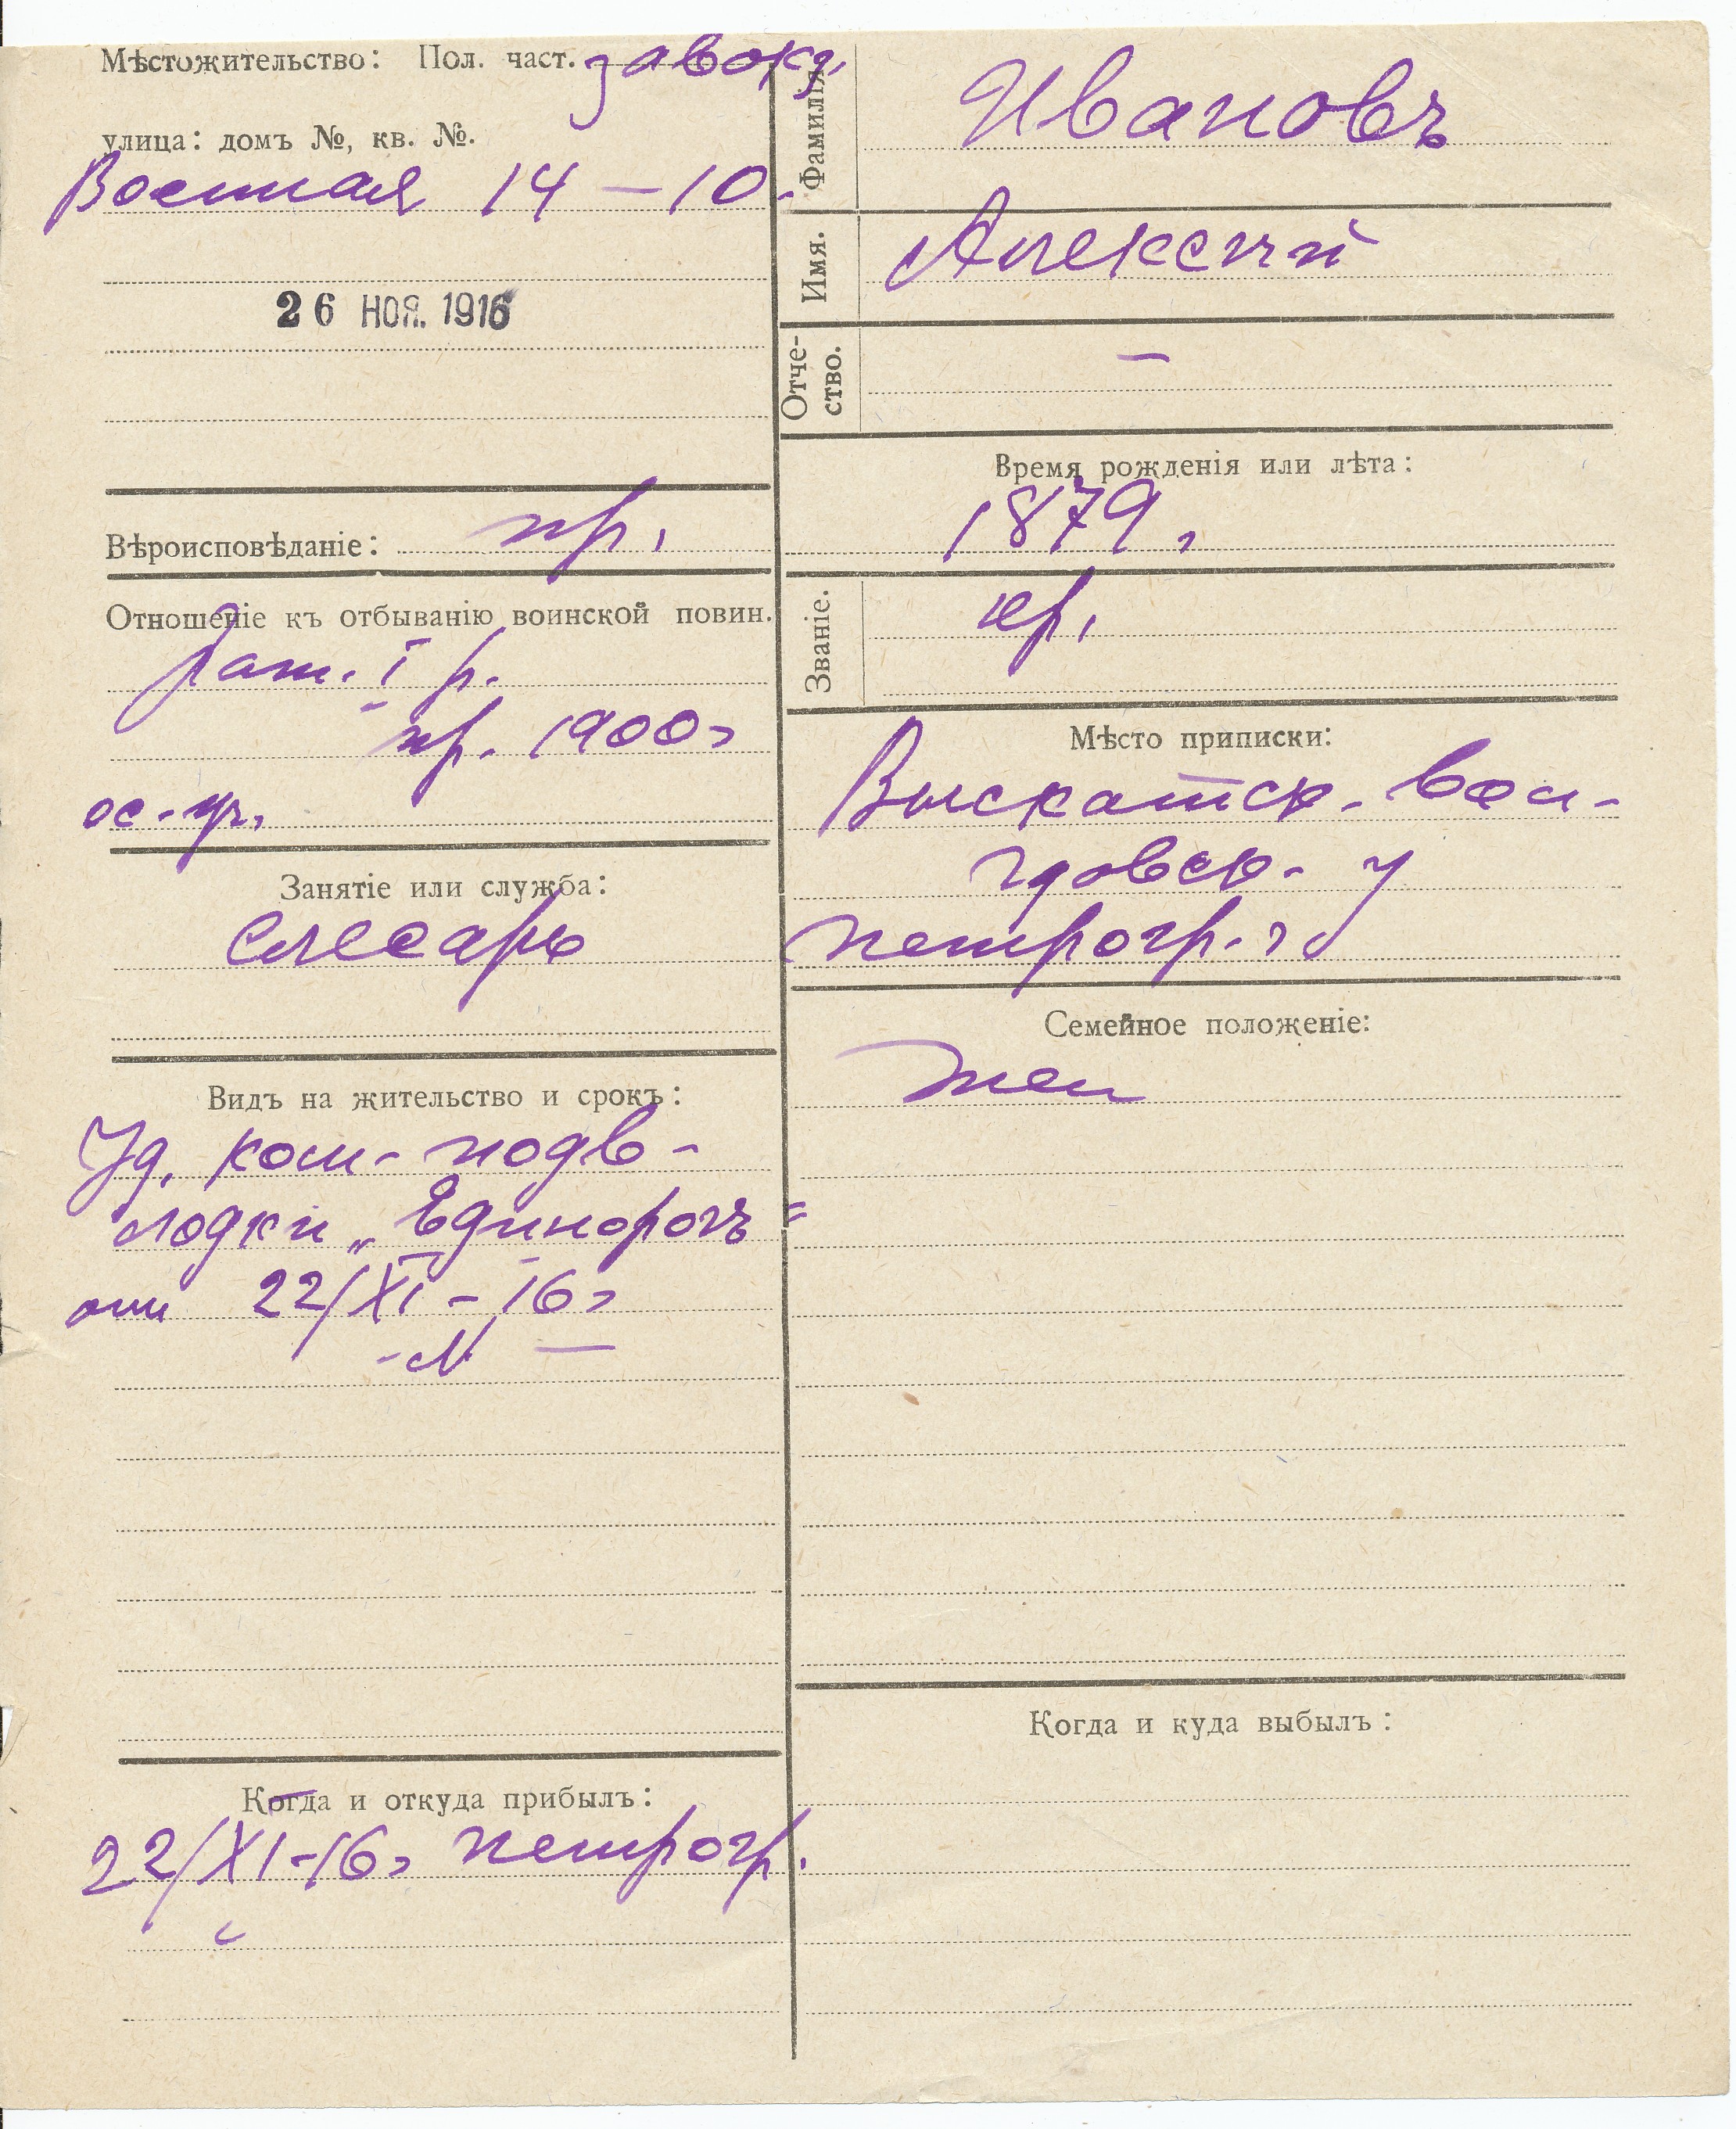 Мѣстожительство: Пол. част. завокз.
улица: домъ №, кв. №.
Военная 14 — 10.
26 НОЯ. 1916
Вѣроисповѣданіе: пр.
Отношеніе къ отбыванію воинской повин.
Рат. I р.
пр. 1900 г
Занятіе или служба:
Слесарь
Видъ на жительство и срокъ:
Уд. ком- подв-
лодки „Единорогъ"
отъ 22/XI - 16 г
- № —
Когда и откуда прибылъ:
22/XI-16 г петрогр.
Фамилія
Ивановъ
Имя.
Алексѣй
Отче-
ство.
—
Время рожденія или лѣта:
1879 г
Званіе.
кр.
Мѣсто приписки:
Выскатск. вол-
гдовск. у
петрогр. г
Семейное положеніе:
Жен
Когда и куда выбылъ: